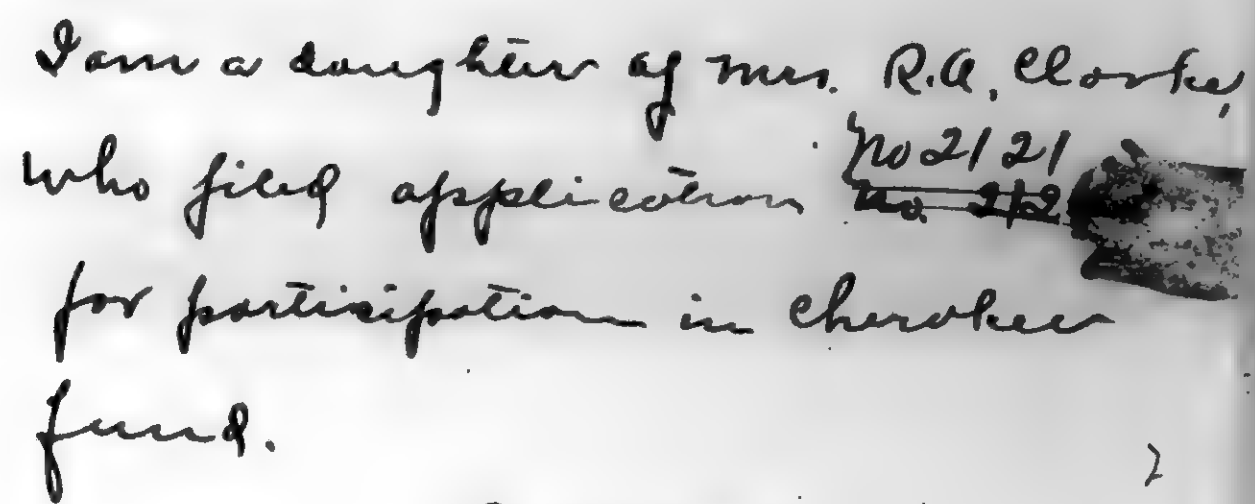 I am a daughter of Mrs. R.A. Clarke,
who filed application No 2121
for participation in Cherokee
fund.